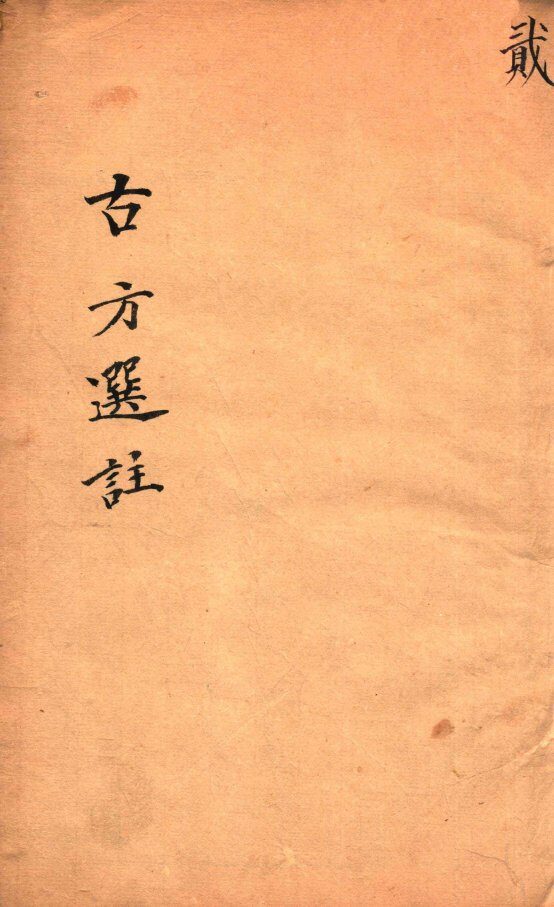 貮
古方選註